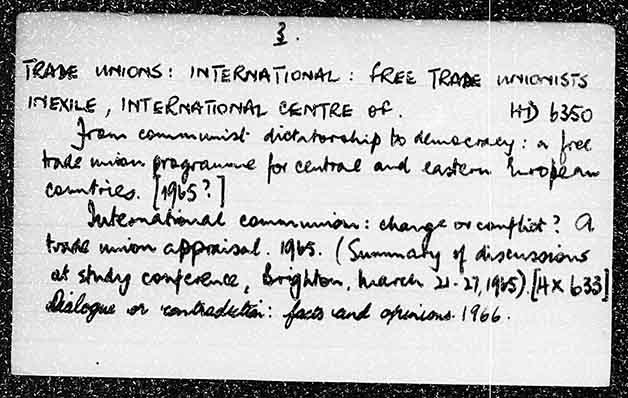 3.
TRADE UNIONS: INTERNATIONAL: FREE TRADE UNIONISTS
IN EXILE, INTERNATIONAL CENTRE OF. HD 6350
From communist dictatorship to democracy: a free
trade union programme for central and eastern European
countries. [1965?]
International communism: change or conflict? A
trade union appraisal. 1965. (Summary of discussions
at study conference, Brighton, March 21-27, 1965). [HX 633]
Dialogue or contradiction: facts and opinions. 1966.